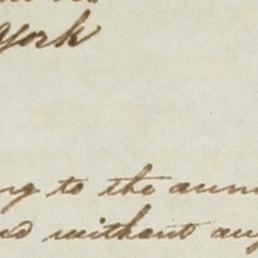 York
ng to the ann
without any